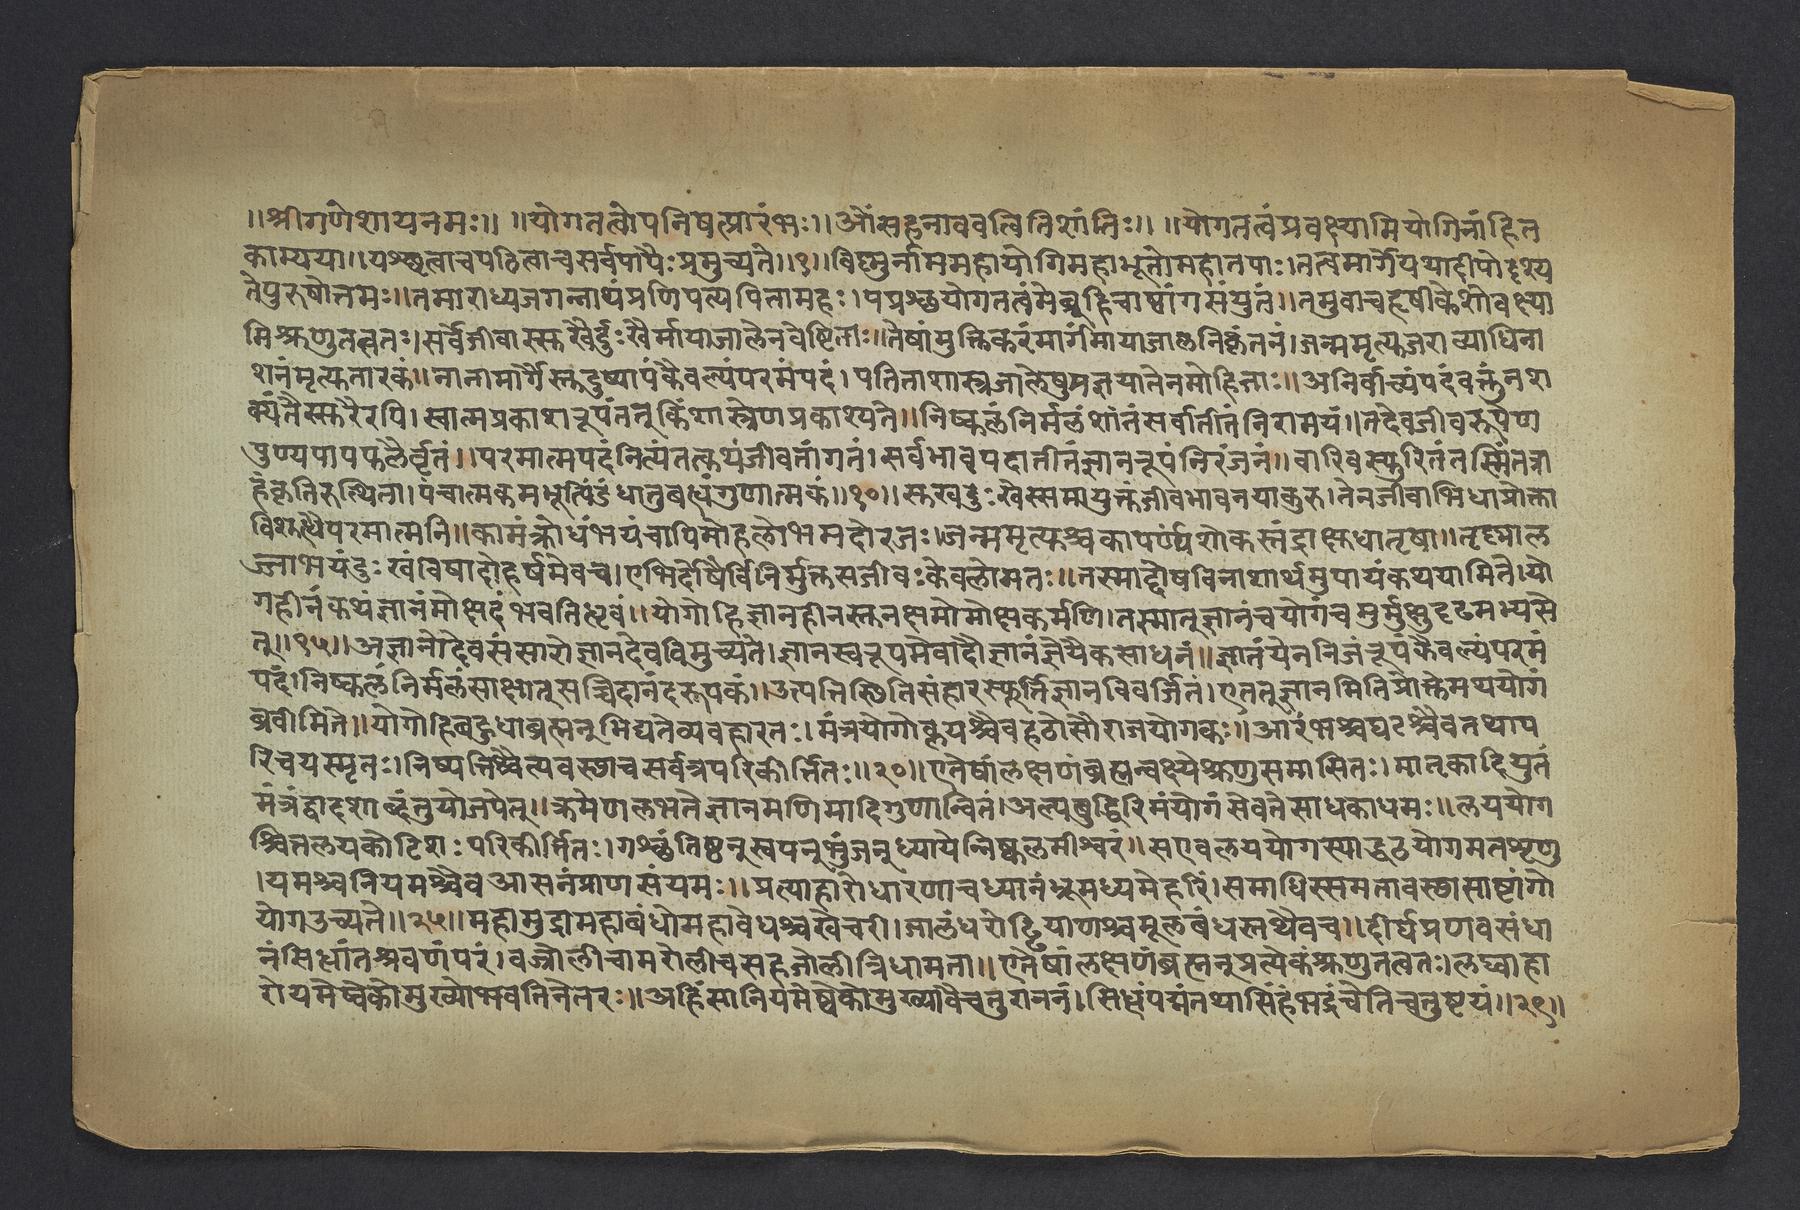 ॥श्रीगणेशायनमः॥ ॥योगतत्वोपनिषत्प्रारंभः॥ओंसहनाववत्वितिशांतिः॥ ॥योगतत्वंप्रवक्ष्यामियोगिनांहित
काम्यया॥यश्छ्रुत्वाचपठित्वाचसर्वपापैःप्रमुच्यते॥१॥विष्णुर्नाममहायोगिमहाभूतोमहातपाः।तत्वमार्गेयथादीपोदृश्य
तेपुरुषोत्तमः॥तमाराध्यजगन्नाथंप्रणिपत्यपितामहः।पप्रश्छयोगतत्वंमेब्रूहिचाष्टांगसंयुतं॥तमुवाचहृषीकेशोवक्ष्या
मिशृणुतत्वतः।सर्वेजीवास्सुखैर्दुःखैर्मायाजालेनवेष्टिताः॥तेषांमुक्तिकरंमार्गंमायाजालनिकृंतनं।जन्ममृत्युजराव्याधिना
शनंमृत्युतारकं॥नानामार्गैस्तुदुष्प्रापंकैवल्यंपरमंपदं।पतिताशास्त्रजालेषुप्रज्ञयातेनमोहिताः॥अनिर्वाच्यंपदंवक्तुंनश
क्यंतैस्सुरैरपि।स्वात्मप्रकाशरूपंतत्किंशास्त्रेणप्रकाश्यते॥निष्कलंनिर्मलंशांतंसर्वातीतंनिरामयं।तदेवजीवरूपेण
पुण्यपापफलैर्वृतं॥परमात्मपदंनित्यंतत्कथंजीवतांगतं।सर्वभावपदातीतंज्ञानरूपंनिरंजनं॥वारिवस्फुरितंतस्मिंतत्रा
हंकृतिरुत्थिता।पंचात्मकमभूत्पिंडंधातुबद्धंगुणात्मकं॥१०॥सुखदुःखैस्समायुक्तंजीवभावनयाकुरु।तेनजीवाभिधाप्रोक्ता
विशुद्धैपरमात्मनि॥कामंक्रोधंभयंचापिमोहलोभमदोरजः।जन्ममृत्युश्चकापर्ण्यंशोकस्तंद्राक्षुधातृषा॥तृष्णाल
ज्जाभयंदुःखंविषादोहर्षमेवच।एभिर्दोषैर्विनिर्मुक्तसजीवःकेवलोमतः॥तस्माद्दोषविनाशार्थमुपायंकथयामिते।यो
गहीनंकथंज्ञानंमोक्षदंभवतिध्रुवं॥योगोहिज्ञानहीनस्तुनक्षमोमोक्षकर्मणि।तस्मात्ज्ञानंचयोगंचमुर्मुक्षुदृढमभ्यसे
त्॥१५॥अज्ञानोदेवसंसारोज्ञानदेवविमुच्यते।ज्ञानस्वरूपमेवादौज्ञानंज्ञेयैकसाधनं॥ज्ञातंयेननिजंरूपंकैवल्यंपरमं
पदं।निष्कलंनिर्मलंसाक्षात्सच्चिदानंदरूपकं॥उत्पत्तिस्थितिसंहारस्फूर्तिज्ञानविवर्जितं।एतत्ज्ञानमितिप्रोक्तमथयोगं
ब्रवीमिते॥योगोहिबहुधाब्रह्मन्भिद्यतेव्यवहारतः।मंत्रयोगोल्लयश्चैवहठोसौराजयोगकः॥आरंभश्चघटश्चैवतथाप
रिचयस्मृतः।निष्पत्तिश्चैत्यवस्थाचसर्वत्रपरिकीर्त्तितः॥२०॥एतेषांलक्षणंब्रह्मन्वक्ष्येशृणुसमासितः।मातृकादियुतं
मंत्रंद्वादशाब्दंतुयोजपेत्॥क्रमेणलभतेज्ञानमणिमादिगुणान्वितं।अल्पबुद्धिरिमंयोगंसेवतेसाधकाधमः॥लययोग
श्चित्तलयकोटिशःपरिकीर्त्तितः।गश्छंतिष्ठन्स्वपन्भुंजन्ध्यायेन्निष्कलमीश्वरं॥सएवलययोगस्याद्धठयोगमतशृणु
।यमश्चनियमश्चैवआसनंप्राणसंयमः॥प्रत्याहारोधारणाचध्यानंभ्रूमध्यमेहरिं।समाधिस्समतावस्थासाष्टांगो
योगउच्यते॥२५॥महामुद्रामहाबंधोमहावेधश्चखेचरी।जालंधरोड्डियाणश्चमूलबंधस्तथैवच॥दीर्घप्रणवसंधा
नंसिद्धांतश्रवणंपरं।वज्रोलीचामरोलीचसहजोलीत्रिधामता॥एतेषांलक्षणंब्रह्मन्प्रत्येकंशृणुतत्वतः।लघ्वाहा
रोयमेष्वेकोमुख्योभवतिनेतरः॥अहिंसानियमेष्वेकोमुख्यावैचतुराननं।सिद्धंपद्मंतथासिंहंभद्रंचेतिचतुष्टयं॥२९॥